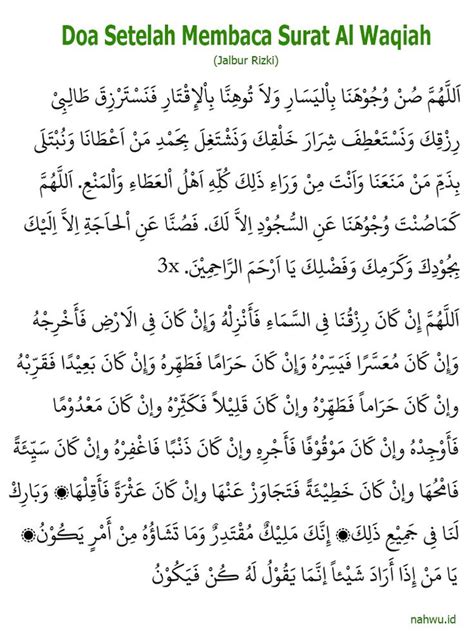 Doa Setelah Membaca Surat Al Waqiah
(Jalbur Rizki)
اَللَّهُمَّ صُنْ وُجُوْهَنَا بِاْليَسَارِ وَلاَ تُوهِنَّا بِاْلإِقْتَارِ فَنَسْتَرْزِقَ طَالِبِيْ
رِزْقِكَ وَنَسْتَعْطِفَ شِرَارَ خَلْقِكَ وَنَشْتَغِلَ بِحَمْدِ مَنْ اَعْطَانَا وَنُبْتَلَى
بِذَمِّ مَنْ مَنَعَنَا وَاَنْتَ مِنْ وَرَاءِ ذَلِكَ كُلِّهِ اَهْلُ اْلعَطَاءِ وَاْلمَنْعِ. اَللَّهُمَّ
كَمَاصُنْتَ وُجُوْهَنَا عَنِ السُّجُوْدِ اِلاَّ لَكَ. فَصُنَّا عَنِ اْلحَاجَةِ اِلاَّ اِلَيْكَ
بِجُوْدِكَ وَكَرَمِكَ وَفَضْلِكَ يَا اَرْحَمَ الرَّاحِمِيْنَ. 3x
اَللَّهُمَّ إِنْ كَانَ رِزْقُنَا فِى السَّمَاءِ فَأَنْزِلْهُ وَإِنْ كَانَ فِى الَارْضِ فَأَخْرِجْهُ
وَإِنْ كَانَ مُعَسَّرًا فَيَسِّرْهُ وَإِنْ كَانَ حَرَامًا فَطَهِّرْهُ وَإِنْ كَانَ بَعِيْدًا فَقَرِّبْهُ
وَإِنْ كَانَ حَرَاماً فَطَهِّرْهُ وإنْ كَانَ قَلِيْلاً فَكَثِّرْهُ وإنْ كَانَ مَعْدُوْمًا
فَأَوْجِدْهُ وَإنْ كَانَ مَوْقُوْفًا فَأَجْرِهِ وإنْ كَانَ ذَنْبًا فَاغْفِرْهُ وإنْ كَانَ سَيِّئَةً
فَامْحُهَا وإنْ كَانَ خَطِيْئَةً فَتَجَاوَزْ عَنْهَا وإنْ كَانَ عَثْرَةً فَأَقِلْهَا۞ وَبَارِكْ
لَنَا فِى جَمِيْعِ ذَلِكَ۞ إِنَّكَ مَلِيْكٌ مُقْتَدِرٌ وَمَا تَشَاؤُهُ مِنْ أَمْرٍ يَكُوْنُ۞
يَا مَنْ إِذَا أَرَادَ شَيْئاً إنَّمَا يَقُوْلُ لَهُ كُنْ فَيَكُوْنُ
nahwu.id